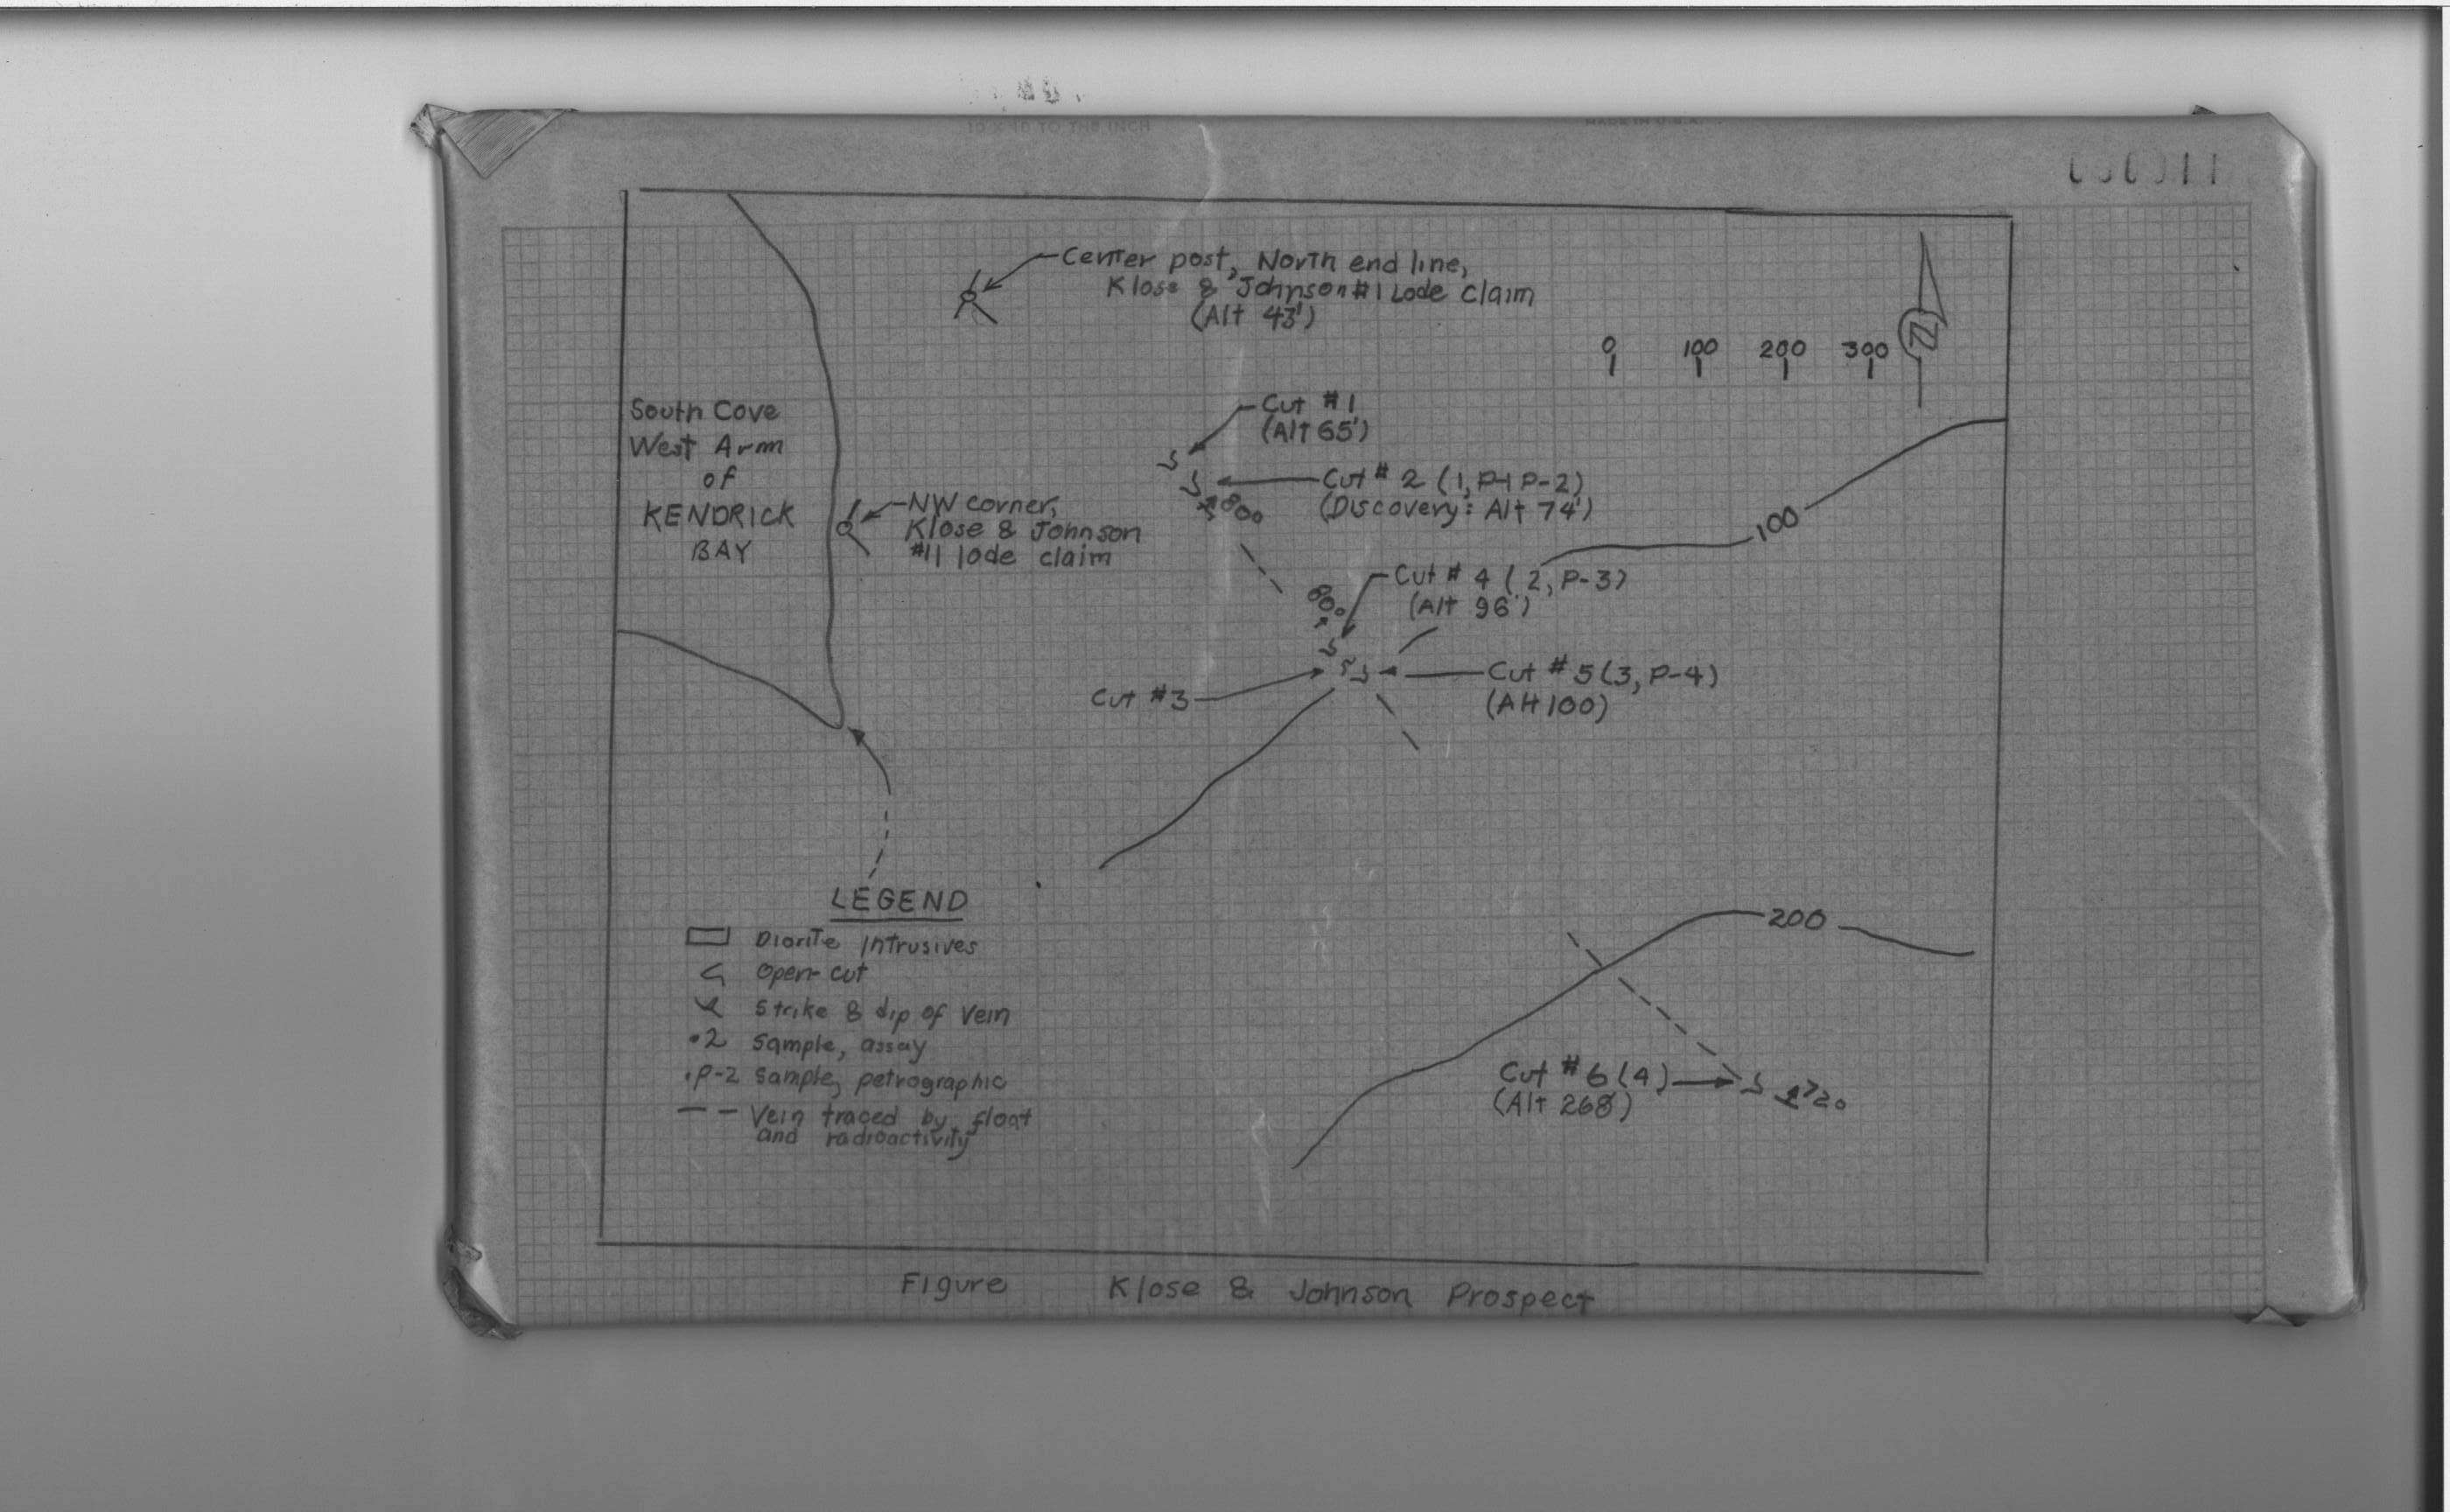 10 X 10 TO THE INCH
MADE IN U.S.A.
Center post, North end line,
Klose & Johnson #1 Lode claim
(Alt 43')
N
0 100 200 300
South Cove
West Arm
of
KENDRICK
BAY
Cut #1
(Alt 65')
Cut # 2 (1, P-1 P-2)
(Discovery: Alt 74')
80°
NW corner,
Klose & Johnson
#1 lode claim
100
Cut # 4 (2, P-3)
(Alt 96')
80°
Cut #3
Cut # 5 (3, P-4)
(Alt 100)
200
Cut # 6 (4)
(Alt 268')
LEGEND
Diorite Intrusives
Open-cut
Strike & dip of vein
•2 Sample, assay
•P-2 Sample, petrographic
Vein traced by float
and radioactivity
Figure Klose & Johnson Prospect